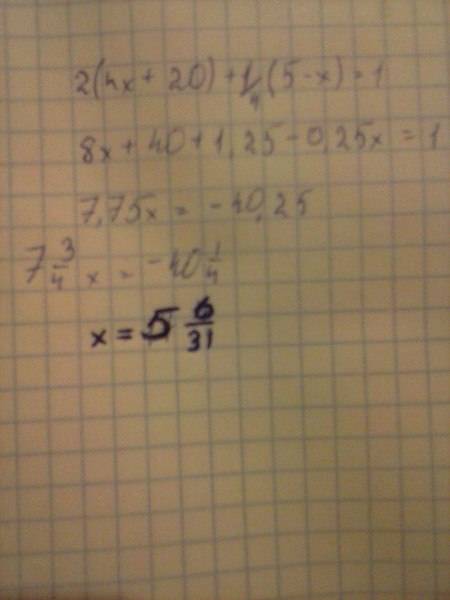 2(4x + 20) + 1/4 (5 - x) = 1
8x + 40 + 1,25 - 0,25x = 1
7,75x = - 40,25
7 3/4 x = - 40 1/4
x = 5 6/31